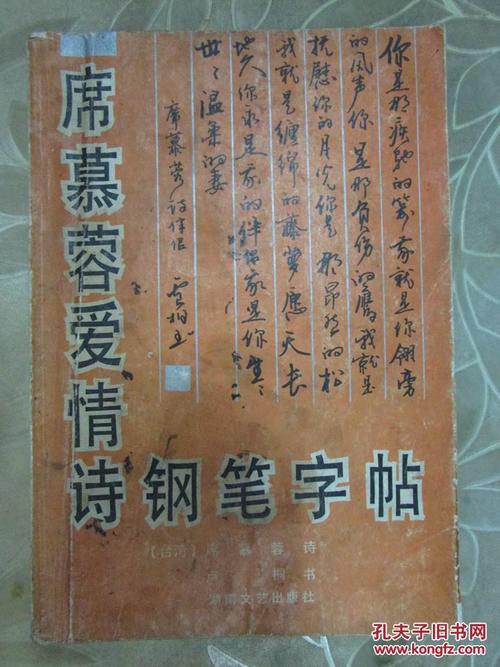 席慕蓉爱情诗钢笔字帖
你是那疾驰的箭我就是你翎旁
的风声你是那负伤的鹰我就是
抚慰你的月光你是那昂然的松
我就是缠绵的藤萝愿天长
地久你永是我的伴侣我是你生〻
世〻温柔的妻
席慕蓉诗伴侣
[台湾] 席慕蓉 诗
桐 书
湖南文艺出版社
孔夫子旧书网
www.kongfz.com